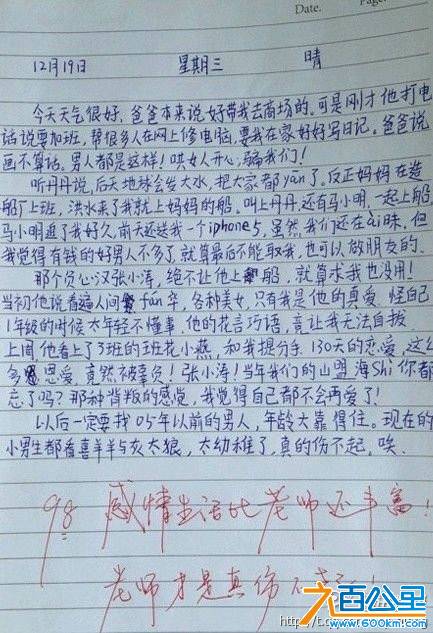 Date.
Page.
12月19日 星期三 晴
今天天气很好，爸爸本来说好带我去商场的。可是刚才他打电
话说要加班，帮很多人在网上修电脑，要我在家好好写日记。爸爸说
画不算话。男人都是这样！哄女人开心，骗我们！
听丹丹说，后天地球会发大水，把大家都yān了。反正妈妈在造
船厂上班，洪水来了我就上妈妈的船。叫上丹丹还有马小明，一起上船，
马小明追了我好久，前天还送我一个iphone5，虽然我们还在ài昧，但
我觉得有钱的好男人不多了，就算最后不能取我，也可以做朋友的。
那个负心汉张小涛，绝不让他上船，就算求我也没用！
当初他说看遍人间fán华，各种美女，只有我是他的真爱。怪自己
1年级的时候太年轻不懂事，他的花言巧语，竟让我无法自拔
上周他看上了3班的班花小燕，和我提分手，130天的恋爱，这么
多恩爱，竟然被辜负！张小涛！当年我们的山盟海Shì你都
忘了吗？那种背叛的感觉，我觉得自己都不会再爱了！
以后一定要找05年以前的男人，年龄大靠得住。现在的
小男生都看喜羊羊与灰太狼，太幼稚了，真的伤不起。唉
98 感情生活比老师还丰富！
老师才是真伤不起！
六百公里
www.600km.com